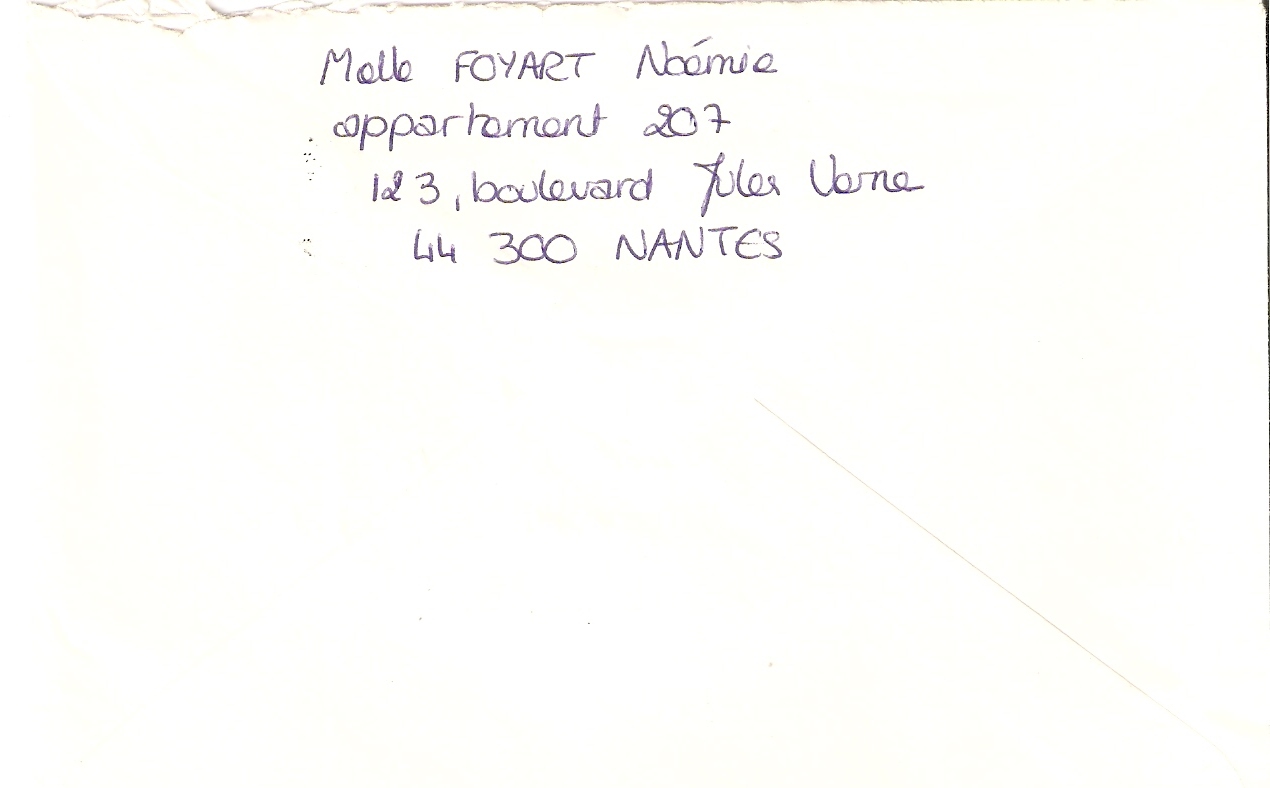 Melle FOYART Noémie
appartement 207
123, boulevard Jules Verne
44 300 NANTES